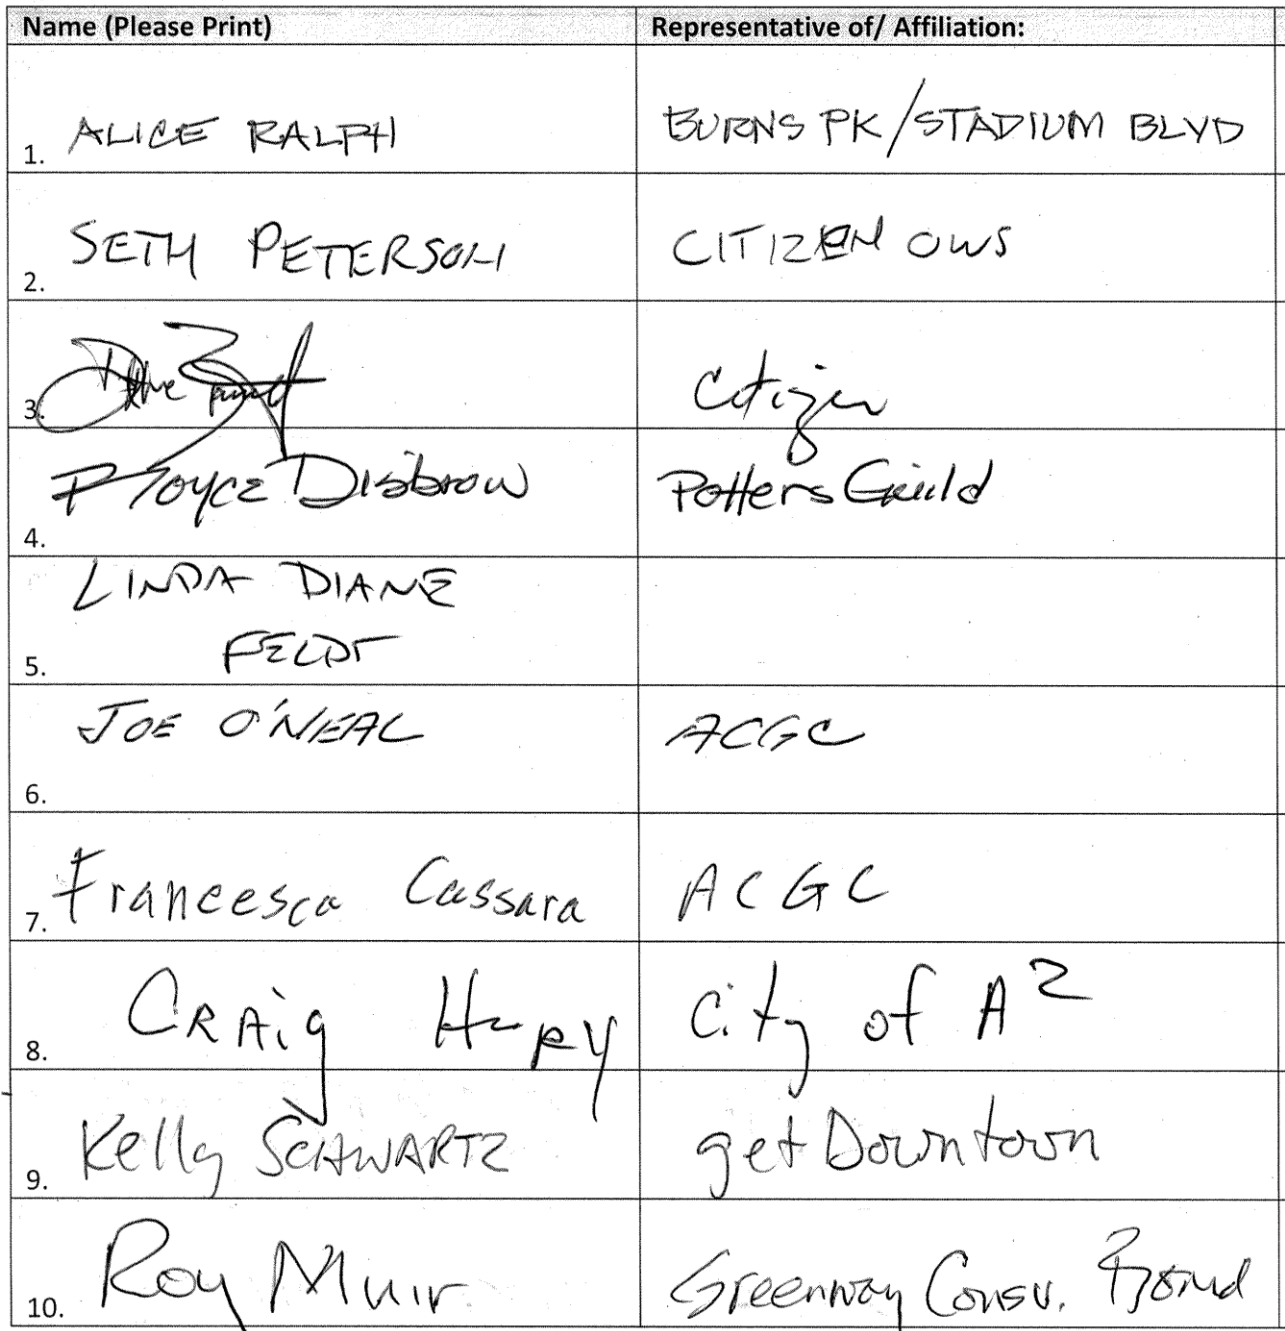 Name (Please Print) Representative of/ Affiliation:
1. ALICE RALPH BURNS PK/STADIUM BLVD
2. SETH PETERSON CITIZEN OWS
3. Citizen
4. Royce Disbrow Potters Guild
LINDA DIANE
5. FELDT
6. JOE O'NEAL ACGC
7. Francesca Cassara ACGC
8. CRAig City of A2
9. Kelly SCHWARTZ getDowntown
10. Roy Muir Greenway Consv.